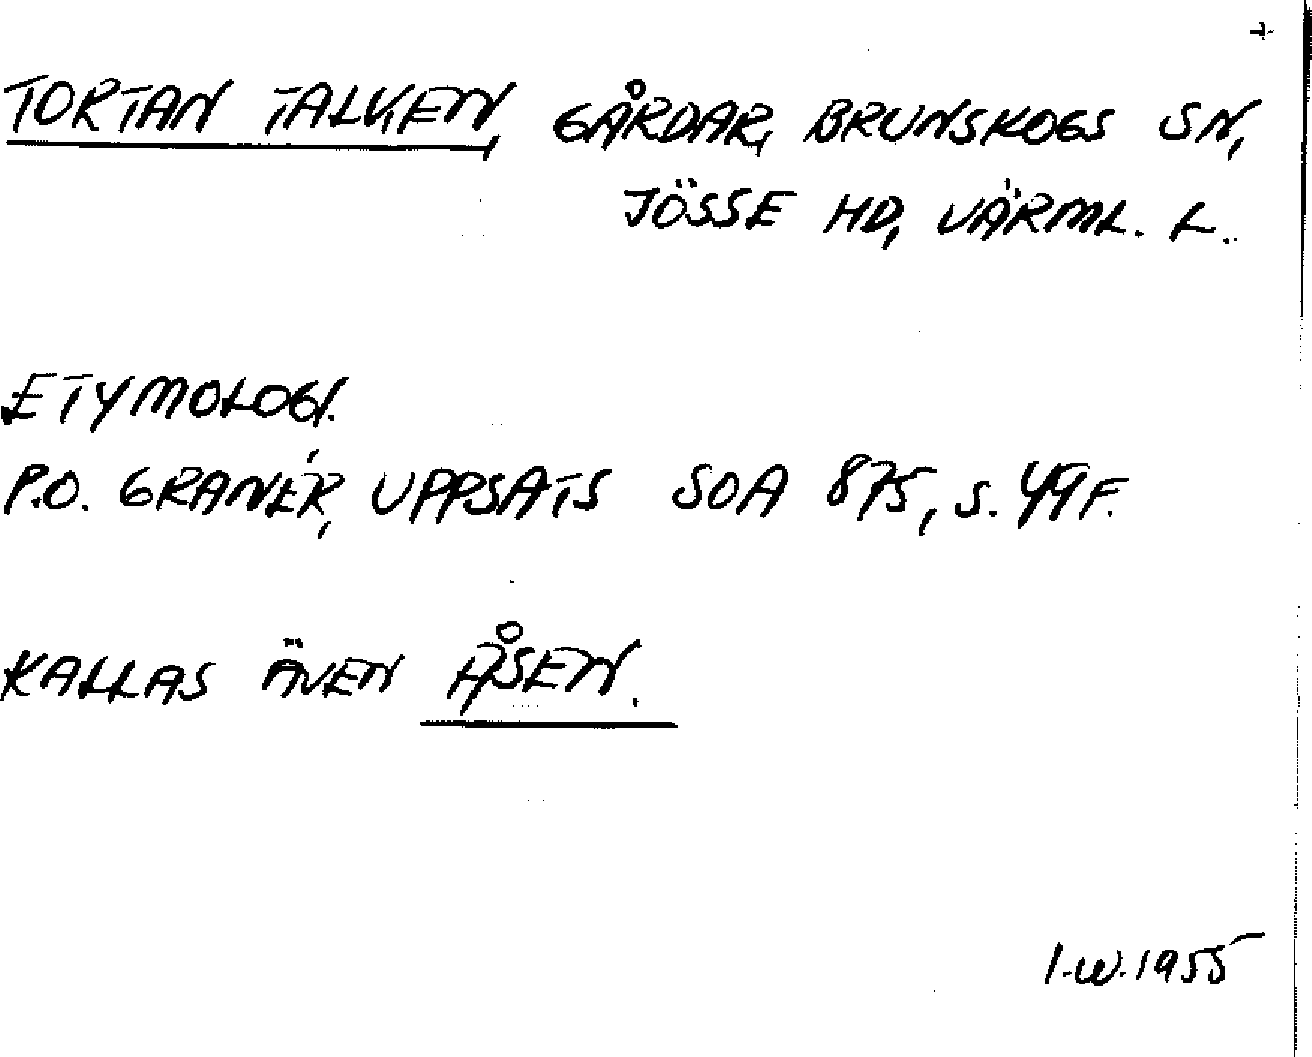 TORTAN TALVIEN, GÅRDAR, BRUNSKOGS SN,
JÖSSE HD, VÄRML. L.
ETYMOLOGI.
P.O. GRANÉR, UPPSATS SOA 875, S. 49 F.
KALLAS ÄVEN ÅSEN.
I.W. 1955